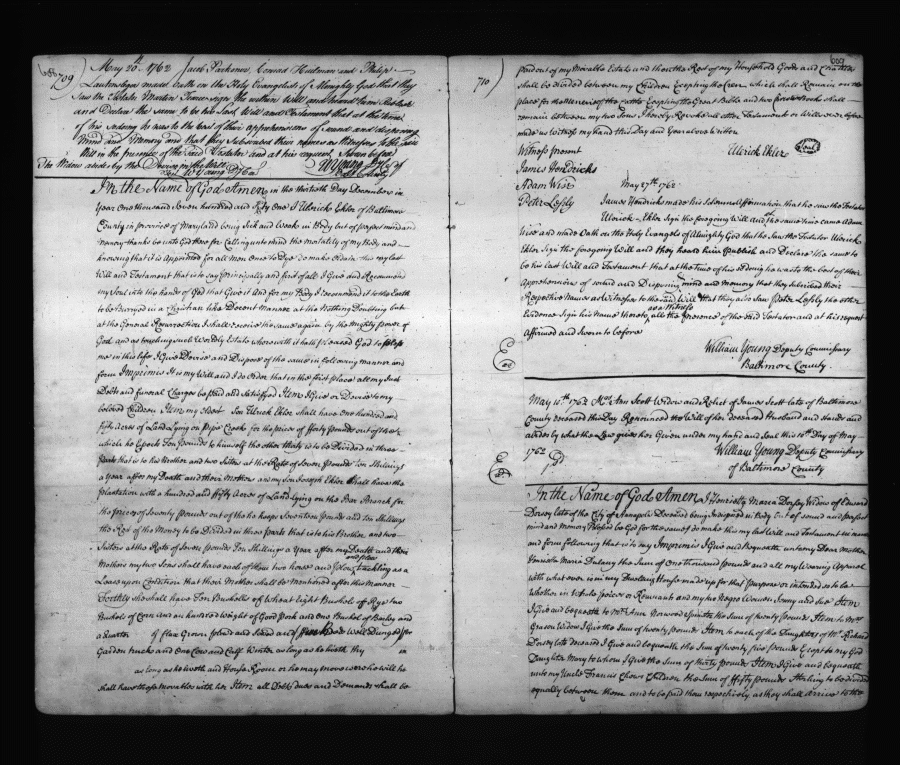 709
May 20th 1762 Jacob Conrad and Philip
made Oath on the Holy Evangelists of Almighty God that they
saw the Testator Martin sign the within Will and heard him Publish
and Declare the same to be his Last Will and Testament that at the time
of his so doing he was to the best of their apprehensions of sound and disposing
Mind and Memory and that they subscribed their names as Witnesses to the said
Will in the presence of the said Testator and at his request Sworn before
The Widow abides by the Devise in the Will
Test W Young Dy Com
WYoung Dy Com of
Balt County
In the Name of God Amen in the thirtieth Day December in
Year One thousand Seven hundred and Sixty One I Ulerick Ekler of Baltimore
County in Province of Maryland being Sick and Weake in Body but of perfect mind and
Memory thanks be unto God therefore Calling unto mind the Mortality of my Body and
knowing that it is Appointed for all men Once to Dye do make Ordain this my last
Will and Testament that is to say principally and first of all I Give and Recommend
my Soul into the hands of God that Gave it and for my Body I recommend it to the Earth
to be Burryed in a Christian like Decent Manner at the Nothing Doubting but
at the General Resurrection I shall receive the same again by the mighty power of
God and as touching such Worldly Estate wherewith it hath pleased God to bless
me in this life I Give Devise and Dispose of the same in following manner and
form Imprimis It is my Will and I do Order that in the first place all my Just
Debts and funeral Charges be paid and Satisfyed Item I Give or Devise to my
beloved Children Item my oldest Son Ulrick Ekler shall have One hundred and
fifty Acres of Land Lying on Pipe Creek for the price of fforty Pounds out of that
which he Expects Ten pounds to himself the other thirty is to be Divided in three
parts that is to his Brother and two Sisters at the Rate of Seven Pounds Ten Shillings
a Year after my Death and their Mother and my son Joseph Ekler Shall have the
plantation with a hundred and fifty Acres of Land lying on the Bear Branch for
the price of Seventy pounds out of the he keeps Seventeen Pounds and ten Shillings
the Rest of the Money to be Divided in three parts that is to his Brother and two
Sisters at the Rate of Seven pounds Ten Shillings a Year after my Death and their
Mothers my two Sons shall have each of them two horse and plow and plow tackling as a
Lease upon Condition that their Mother shall be Mentioned after this Manner
Forthly she shall have Ten Bushells of Wheat Eight Bushels of Rye two
Bushels of Corn and an hundred weight of Good Pork and One Bushel of Barley and
a quarter of Flax Grown plowed and Sowed and well Dunged for
Garden trucks and One Cow and Calf Winter as long as he liveth they
as long as he liveth and House Room or he may move where he will he
shall have those movables with her Item all Debts dues and Demands shall be
710
paid out of my Movable Estate and then the Rest of my Household Goods and Chattles
shall be divided between my Children Excepting the Corn which shall Remain on the
place for the Maintenance of the Cattle Excepting the Great Bible and two shall
remain between my two Sons I hereby Revoke all other Testaments or Wills ever before
made as Witness my hand this Day and Year above Written
Witness present
Ulerick Ekler (Seal)
James Hendricks
Adam Wise
May 27th 1762
Peter Lessly
James Hendricks made his Solemn Affirmation that he saw the Testator
Ulerick Ekler Sign the foregoing Will and at the same time came Adam
Wise and made Oath on the Holy Evangels of Almighty God that he saw the Testator Ulerick
Ekler Sign the foregoing Will and they heard him Publish and Declare the same to
be his Last Will and Testament that at the time of his so doing he was to the best of their
Apprehensions of sound and Disposing mind and Memory that they subscribed their
Respective Names as Witnesses to the said Will that they also saw Peter Lessly the other
Evidence Sign his Name thereto as a Witness all the presence of the said Testator and at his request
affirmed and Sworn to before
William Young Deputy Commissary
Baltimore County.
May 10th 1762 Mrs Ann Scott Widow and Relict of James Scott late of Baltimore
County deceased this Day Renounced the Will of her deceased Husband and stands and
abides by what the Law gives her Given under my hand and Seal this 10th Day of May
1762
William Young Deputy Commissary
of Baltimore County
In the Name of God Amen I Henrietta Maria Dorsey Widow of Edward
Dorsey late of the City of Annapolis Deceased being Indisposed in Body but of sound and perfect
mind and Memory Blessed be God for the same do make this my last Will and Testament in manner
and form following that is to say Imprimis I Give and Bequeath unto my Dear Mother
Henrietta Maria Dulany the Sum of One thousand Pounds and all my Wearing Apparel
with what ever is in my Dwelling House made up for that purpose or intended so to be
Whether in whole peices or Remnants and my two Negroe Women Jenny and Sue Item
I Give and bequeath to Mrs Ann Norwood Spinster the Sum of twenty Pounds Item to Mrs
Grason Widow I Give the Sum of twenty pounds Item to each of the Daughters of Mr Richard
Dorsey late deceased I Give and bequeath the Sum of twenty five pounds Except to my God
Daughter Mary to whom I Give the Sum of thirty pounds Item I Give and Bequeath
unto my Uncle Francis Chews Children the Sum of ffifty pounds Sterling to be divided
equally between them and to be paid them respectively as they shall arrive to the